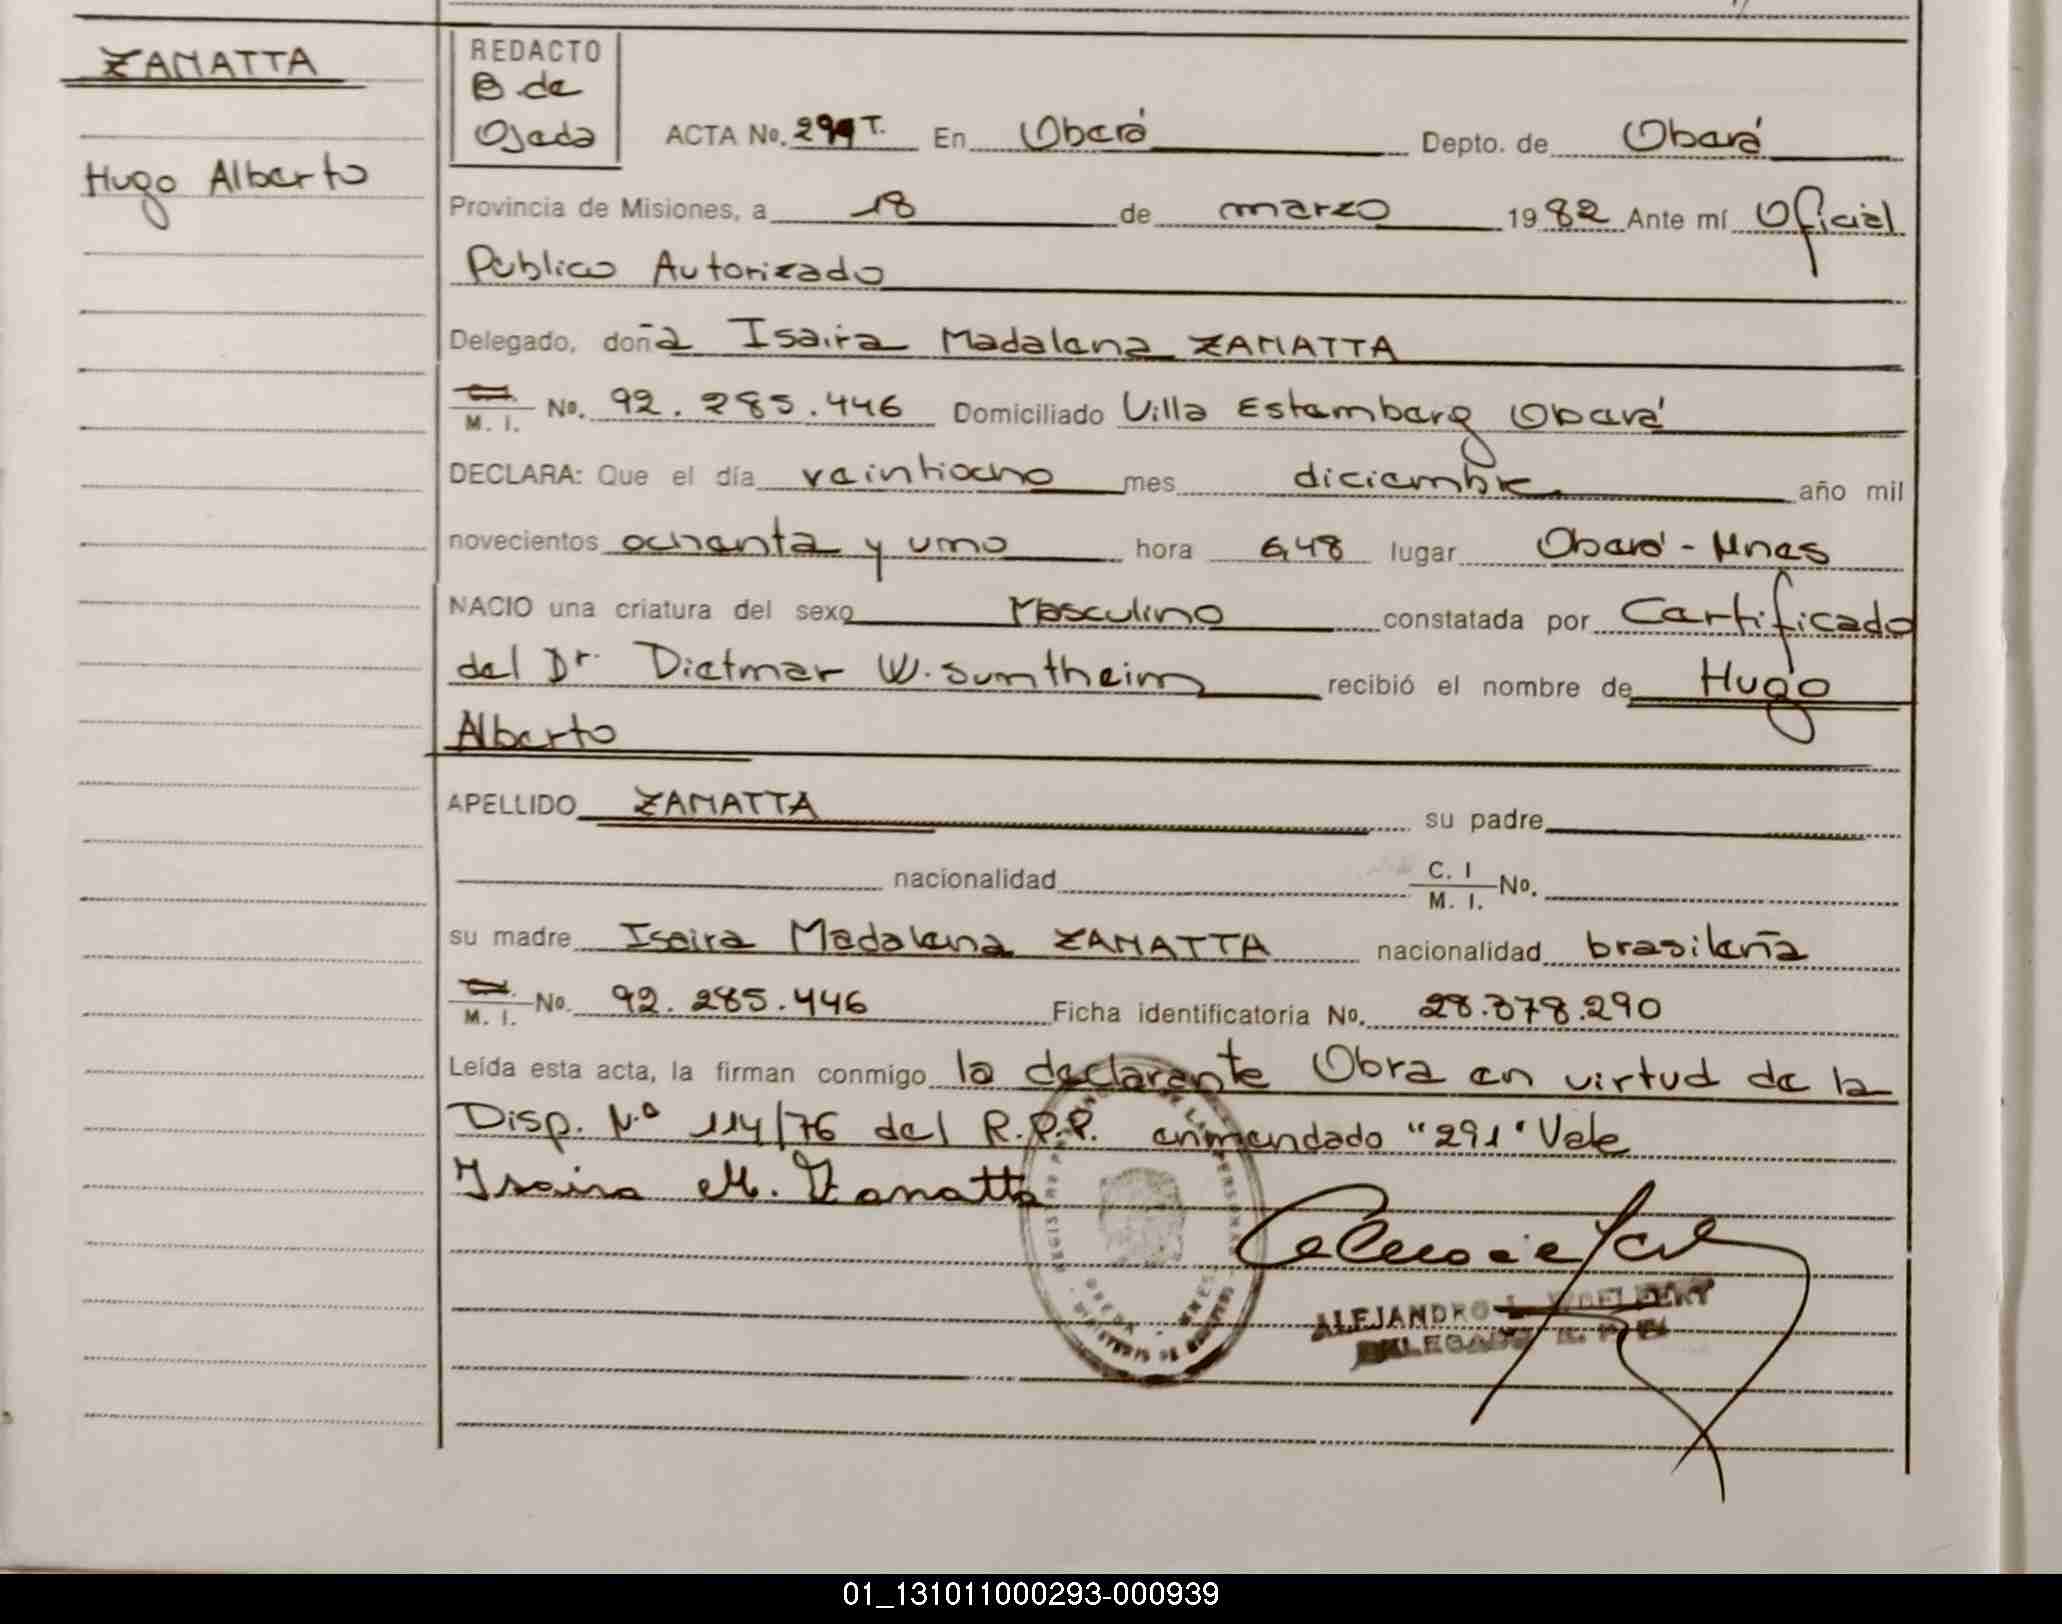 ZANATTA
Hugo Alberto
REDACTO
B. de
Ojeda
ACTA No. 291 T. En Oberá Depto. de Oberá
Provincia de Misiones, a 18 de marzo 1982 Ante mí Oficial
Publico Autorizado
Delegado, doña Isaira Madalena ZANATTA
M. I. No. 92.285.446 Domiciliado Villa Estemberg Oberá
DECLARA: Que el día veintiocho mes diciembre año mil
novecientos ochenta y uno hora 6,48 lugar Oberá - Mnes
NACIO una criatura del sexo Masculino constatada por Certificado
del Dr. Dietmar W. Sumtheim recibió el nombre de Hugo
Alberto
APELLIDO ZANATTA su padre
nacionalidad C. I / M. I. No.
su madre Isaira Madalena ZANATTA nacionalidad brasileña
M. I. No. 92.285.446 Ficha identificatoria No. 28.378.290
Leída esta acta, la firman conmigo la declarante Obra en virtud de la
Disp. N.º 114/76 del R.P.P. enmendado "291" Vale
Isaira M. Zanatta
ALEJANDRO
DELEGADO
01_131011000293-000939